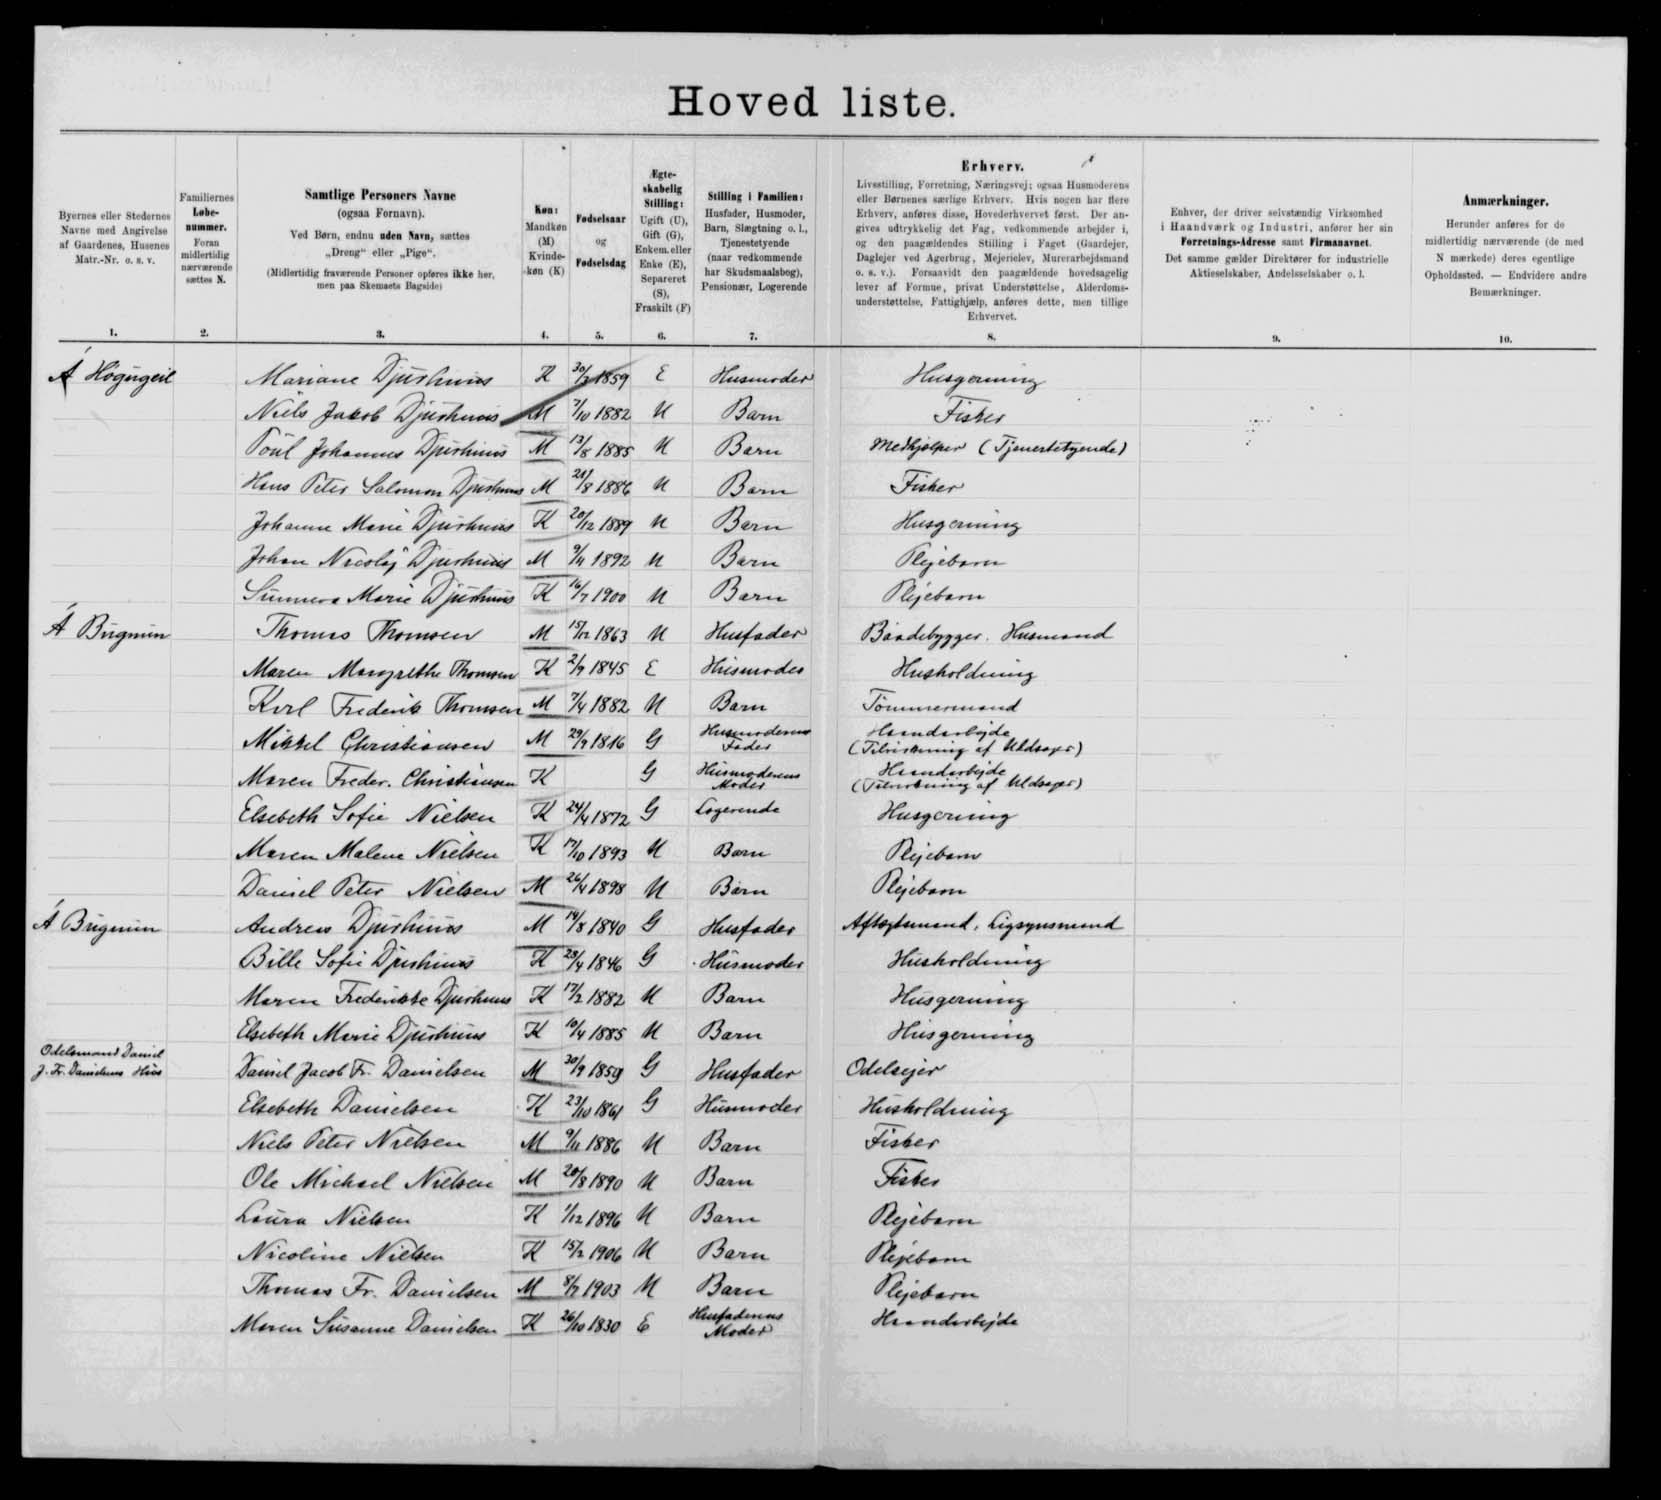 Hoved liste.
Byernes eller Stedernes Navne med Angivelse af Gaardenes, Husenes Matr.-Nr. o. s. v.
Familiernes Løbe-nummer. Foran midlertidig nærværende sættes N.
Samtlige Personers Navne
(ogsaa Fornavn).
Ved Børn, endnu uden Navn, sættes „Dreng“ eller „Pige“.
(Midlertidig fraværende Personer opføres ikke her, men paa Skemaets Bagside)
Køn: Mandkøn (M) Kvinde-køn (K)
Fødselsaar og Fødselsdag
Ægte-skabelig Stilling: Ugift (U), Gift (G), Enkem. eller Enke (E), Separeret (S), Fraskilt (F)
Stilling i Familien: Husfader, Husmoder, Barn, Slægtning o. l., Tjenestetyende (naar vedkommende har Skudsmaalsbog), Pensionær, Logerende
Erhverv.
Livsstilling, Forretning, Næringsvej; ogsaa Husmoderens eller Børnenes særlige Erhverv. Hvis nogen har flere Erhverv, anføres disse, Hovederhvervet først. Der angives udtrykkelig det Fag, vedkommende arbejder i, og den paagældendes Stilling i Faget (Gaardejer, Daglejer ved Agerbrug, Mejerielev, Murerarbejdsmand o. s. v.). Forsaavidt den paagældende hovedsagelig lever af Formue, privat Understøttelse, Alderdomsunderstøttelse, Fattighjælp, anføres dette, men tillige Erhvervet.
Enhver, der driver selvstændig Virksomhed i Haandværk og Industri, anfører her sin Forretnings-Adresse samt Firmanavnet. Det samme gælder Direktører for industrielle Aktieselskaber, Andelsselskaber o. l.
Anmærkninger.
Herunder anføres for de midlertidig nærværende (de med N mærkede) deres egentlige Opholdssted. — Endvidere andre Bemærkninger.
1. 2. 3. 4. 5. 6. 7. 8. 9. 10.
Á Høgugeil Mariane Djurhuus K 30/3 1859 E Husmoder Husgerning
Niels Jakob Djurhuus M 7/10 1882 U Barn Fisker
Poul Johannes Djurhuus M 13/8 1885 U Barn Medhjælper (Tjenestetyende)
Hans Peter Salomon Djurhuus M 21/8 1886 U Barn Fisker
Johanne Marie Djurhuus K 20/12 1889 U Barn Husgerning
Johan Nicolaj Djurhuus M 9/11 1892 U Barn Plejebarn
Sunneva Marie Djurhuus K 16/7 1900 U Barn Plejebarn
Á Bugnun Thomas Thomsen M 15/12 1863 U Husfader Baadebygger. Husmand
Maren Margrethe Thomsen K 2/9 1845 E Husmoder Husholdning
Karl Frederik Thomsen M 7/4 1882 U Barn Tømmermand
Mikkel Christiansen M 29/9 1816 G Husmoderens Fader Haandarbejde (Tilvirkning af Uldsager)
Maren Freder. Christiansen K G Husmoderens Moder Haandarbejde (Tilvirkning af Uldsager)
Elsebeth Sofie Nielsen K 24/4 1872 G Logerende Husgerning
Maren Malene Nielsen K 17/10 1893 U Barn Plejebarn
Daniel Peter Nielsen M 26/4 1898 U Barn Plejebarn
Á Bugnun Andreas Djurhuus M 14/8 1840 G Husfader Aftægtsmand, Ligsynsmand
Bille Sofie Djurhuus K 23/4 1846 G Husmoder Husholdning
Maren Frederikke Djurhuus K 17/2 1882 U Barn Husgerning
Elsebeth Marie Djurhuus K 10/4 1885 U Barn Husgerning
Odelsmand Daniel
J. Fr. Danielsens Hus Daniel Jacob Fr. Danielsen M 30/9 1859 G Husfader Odelsejer
Elsebeth Danielsen K 23/10 1861 G Husmoder Husholdning
Niels Peter Nielsen M 9/11 1886 U Barn Fisker
Ole Michael Nielsen M 20/8 1890 U Barn Fisker
Laura Nielsen K 1/12 1896 U Barn Plejebarn
Nicoline Nielsen K 15/2 1906 U Barn Plejebarn
Thomas Fr. Danielsen M 8/7 1903 U Barn Plejebarn
Maren Susanne Danielsen K 26/10 1830 E Husfaderens Moder Haandarbejde